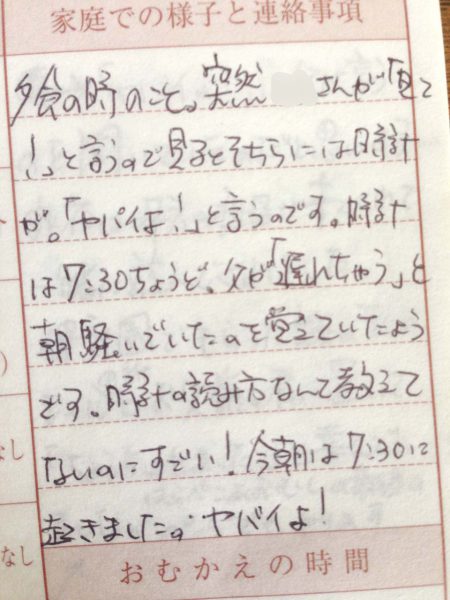 家庭での様子と連絡事項
夕食の時のこと。突然 さんが「見て
!」と言うので見るとそちらには時計
が。「ヤバイよ!」と言うのです。時計
は7:30ちょうど、父が「遅れちゃう」と
朝騒いでいたのを覚えていたよう
です。時計の読み方なんて教えて
ないのにすごい!今朝は7:30に
起きました。ヤバイよ!
なし
なし
おむかえの時間